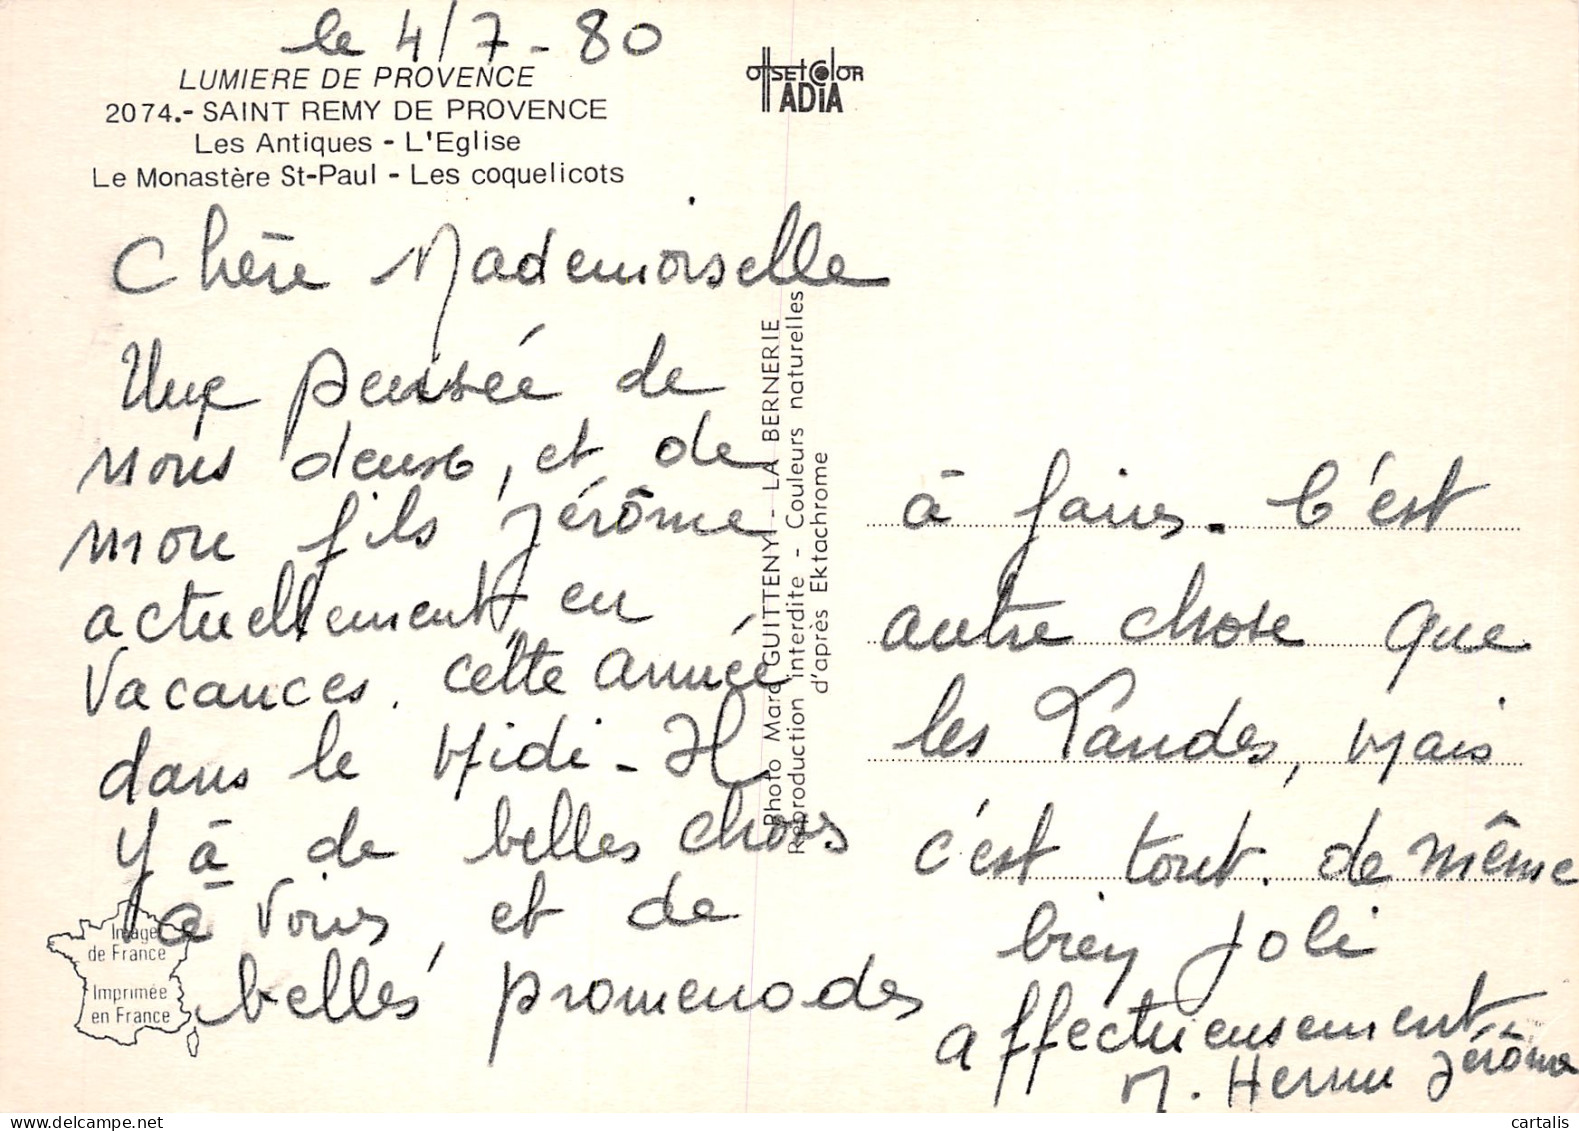 le 4/7-80
LUMIERE DE PROVENCE
2074.- SAINT REMY DE PROVENCE
Les Antiques - L'Eglise
Le Monastère St-Paul - Les coquelicots
OffSEt COlOR
ADIA
Chère Mademoiselle
Une pensée de
nous deux, et de
mon fils Jérôme
actuellement en
Vacances. cette année
dans le Midi - Il
Y à de belles choses
à Voir, et de
belles promenades
Image
de France
Imprimée
en France
Photo Marc GUITTENY - LA BERNERIE
Reproduction interdite - Couleurs naturelles
d'après Ektachrome
à faire. C'est
autre chose que
les Landes, Mais
c'est tout. de même
bien Joli
affectueusement
M. Jérôme
cartalis